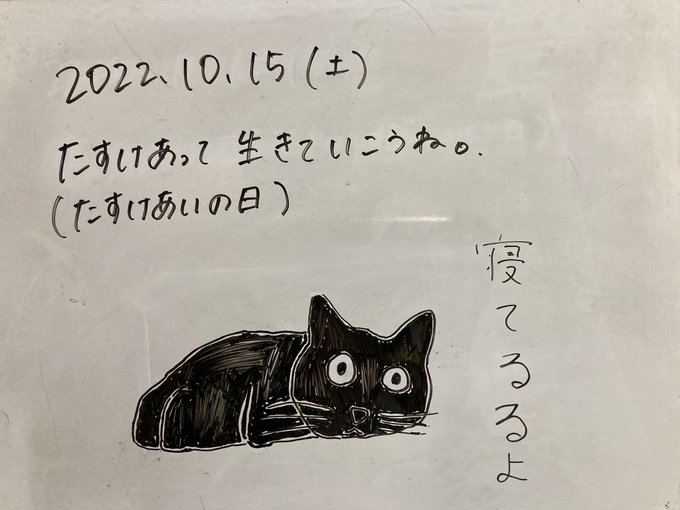 2022.10.15(土)
たすけあって 生きていこうね。
(たすけあいの日)
寝てるるよ